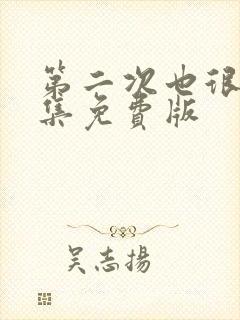 第二次也很
集免费版
吴志揚